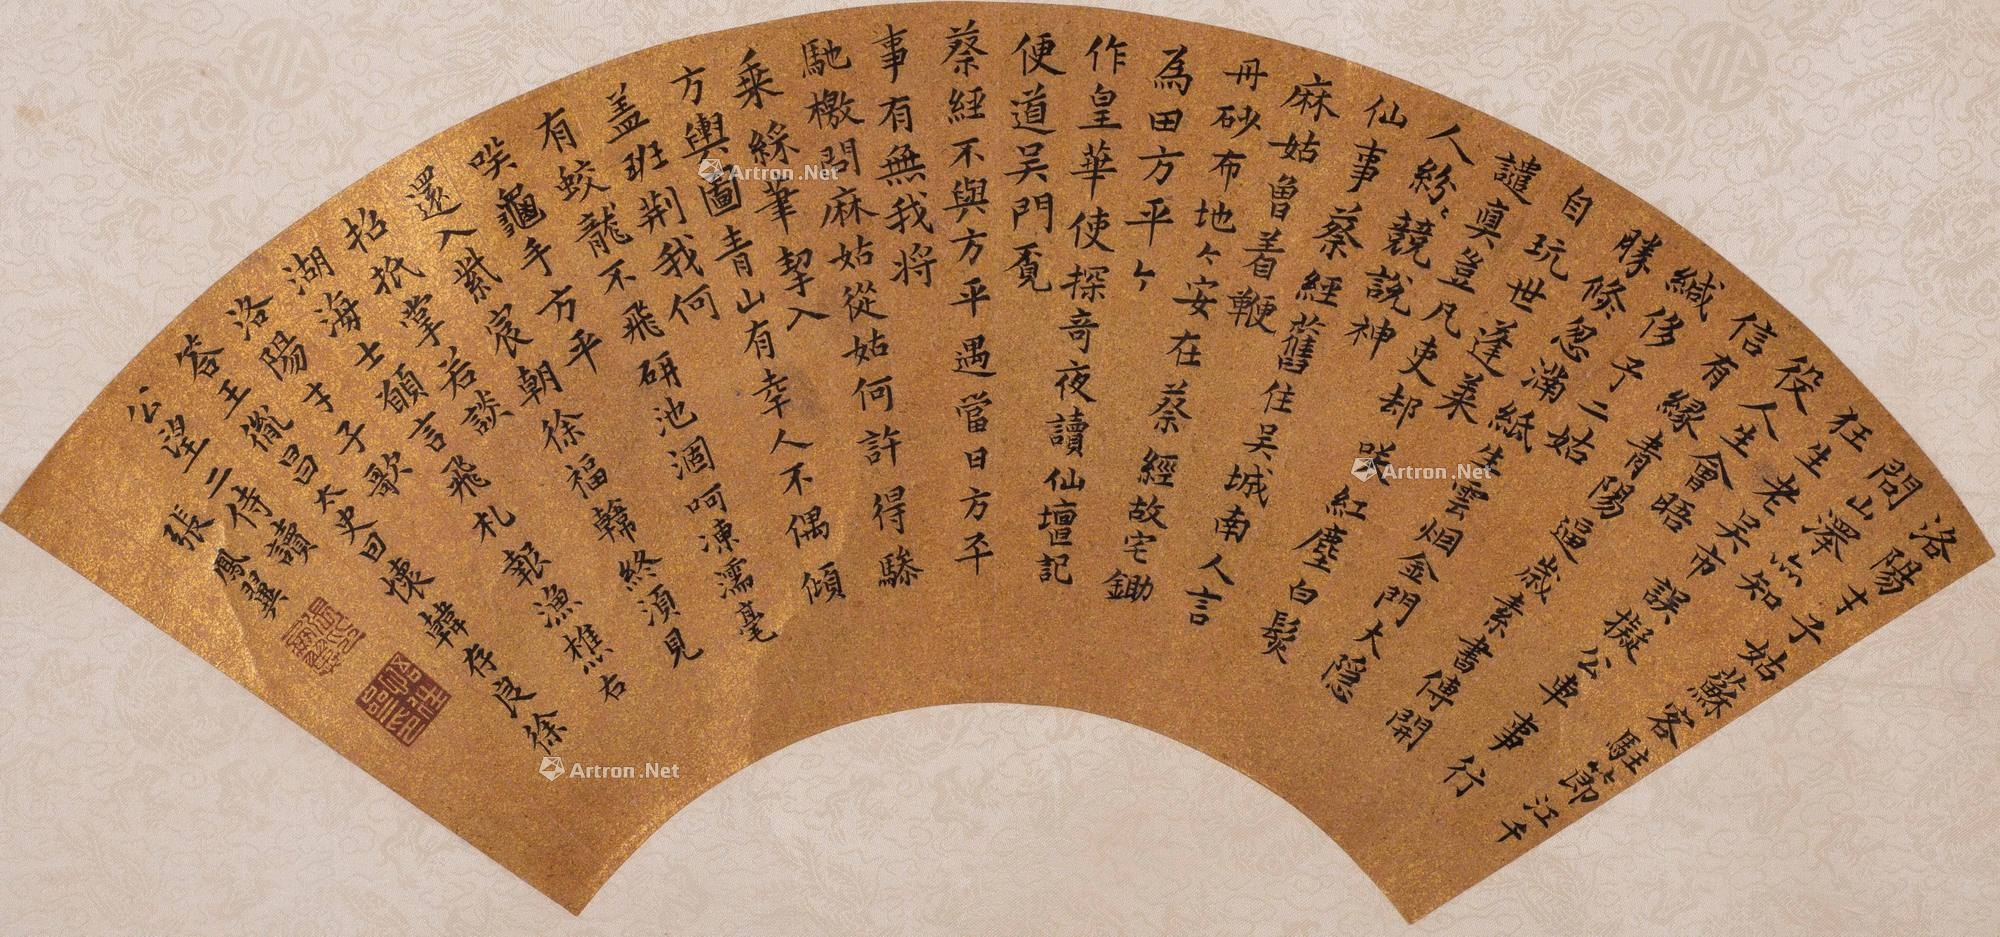 洛陽才子姑蘇客駐節江干
問山澤亦知
狂生老吳市誤擬公車事行
役人生會晤
信有緣青陽逼歲素書傳開
緘侈予二姑
勝修忽滿紙生雲烟金門大隱
自玩世蓬萊
譴真豈凡吏却咲紅塵白髮
人紛〻競說神
仙事蔡經舊住吳城南人言
麻姑曾着鞭
丹砂布地〻安在蔡經故宅鋤
為田方平〻
作皇華使探奇夜讀仙壇記
便道吳門覔
蔡經不與方平遇當日方平
事有無我將
馳檄問麻姑從姑何許得驂
乘綵筆挈入
方輿圖青山有幸人不偶傾
蓋班荆我何
有蛟龍不飛研池涸呵凍濡毫
咲龜手方平
還入紫宸朝徐福韓終須見
招抵掌若談
湖海士願言飛札報漁樵右
洛陽才子歌
答王胤昌太史囙懷韓存良徐
公望二侍讀
張鳳翼
Artron.Net
Artron.Net
Artron.Net